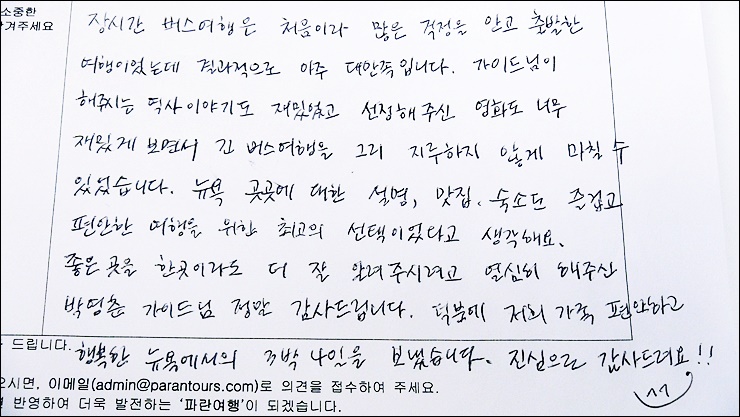 소중한
겨주세요
장시간 버스여행은 처음이라 많은 걱정을 안고 출발한
여행이었는데 결과적으로 아주 대만족입니다. 가이드님이
해주시는 역사이야기도 재밌었고 선정해주신 영화도 너무
재밌게 보면서 긴 버스여행을 그리 지루하지 않게 마칠 수
있었습니다. 뉴욕 곳곳에 대한 설명, 맛집, 숙소도 즐겁고
편안한 여행을 위한 최고의 선택이었다고 생각해요.
좋은 곳을 한곳이라도 더 잘 알려주시려고 열심히 해주신
박영춘 가이드님 정말 감사드립니다. 덕분에 저희 가족 편안하고
드립니다. 행복한 뉴욕에서의 3박 4일을 보냈습니다. 진심으로 감사드려요!!
으시면, 이메일(admin@parantours.com)로 의견을 접수하여 주세요.
반영하여 더욱 발전하는 '파란여행'이 되겠습니다.